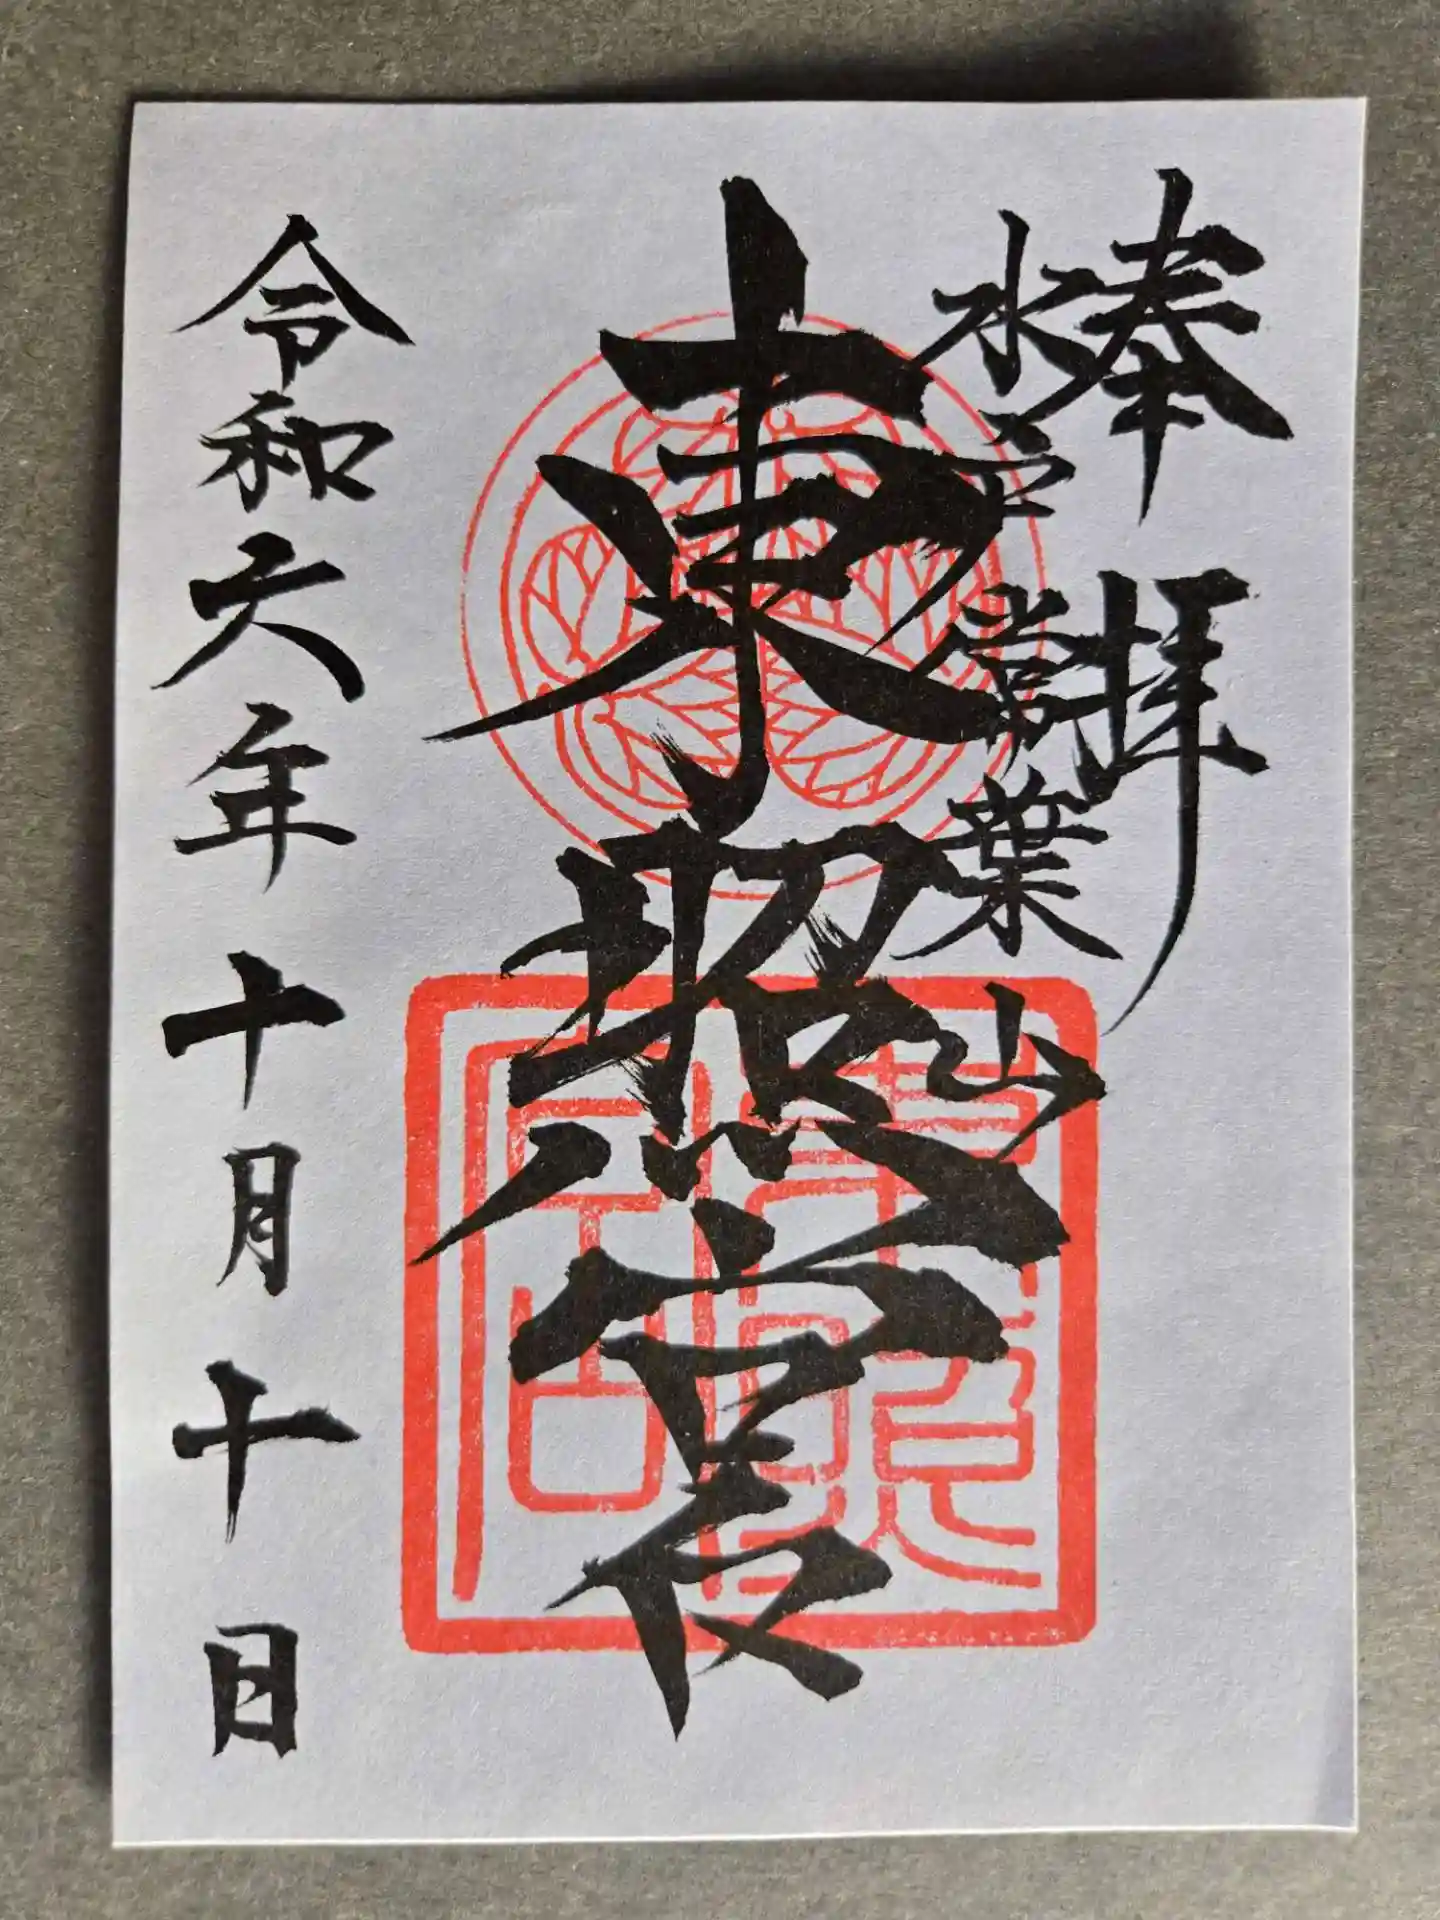 奉拝
水戸常葉山
東照宮
令和六年十月十日